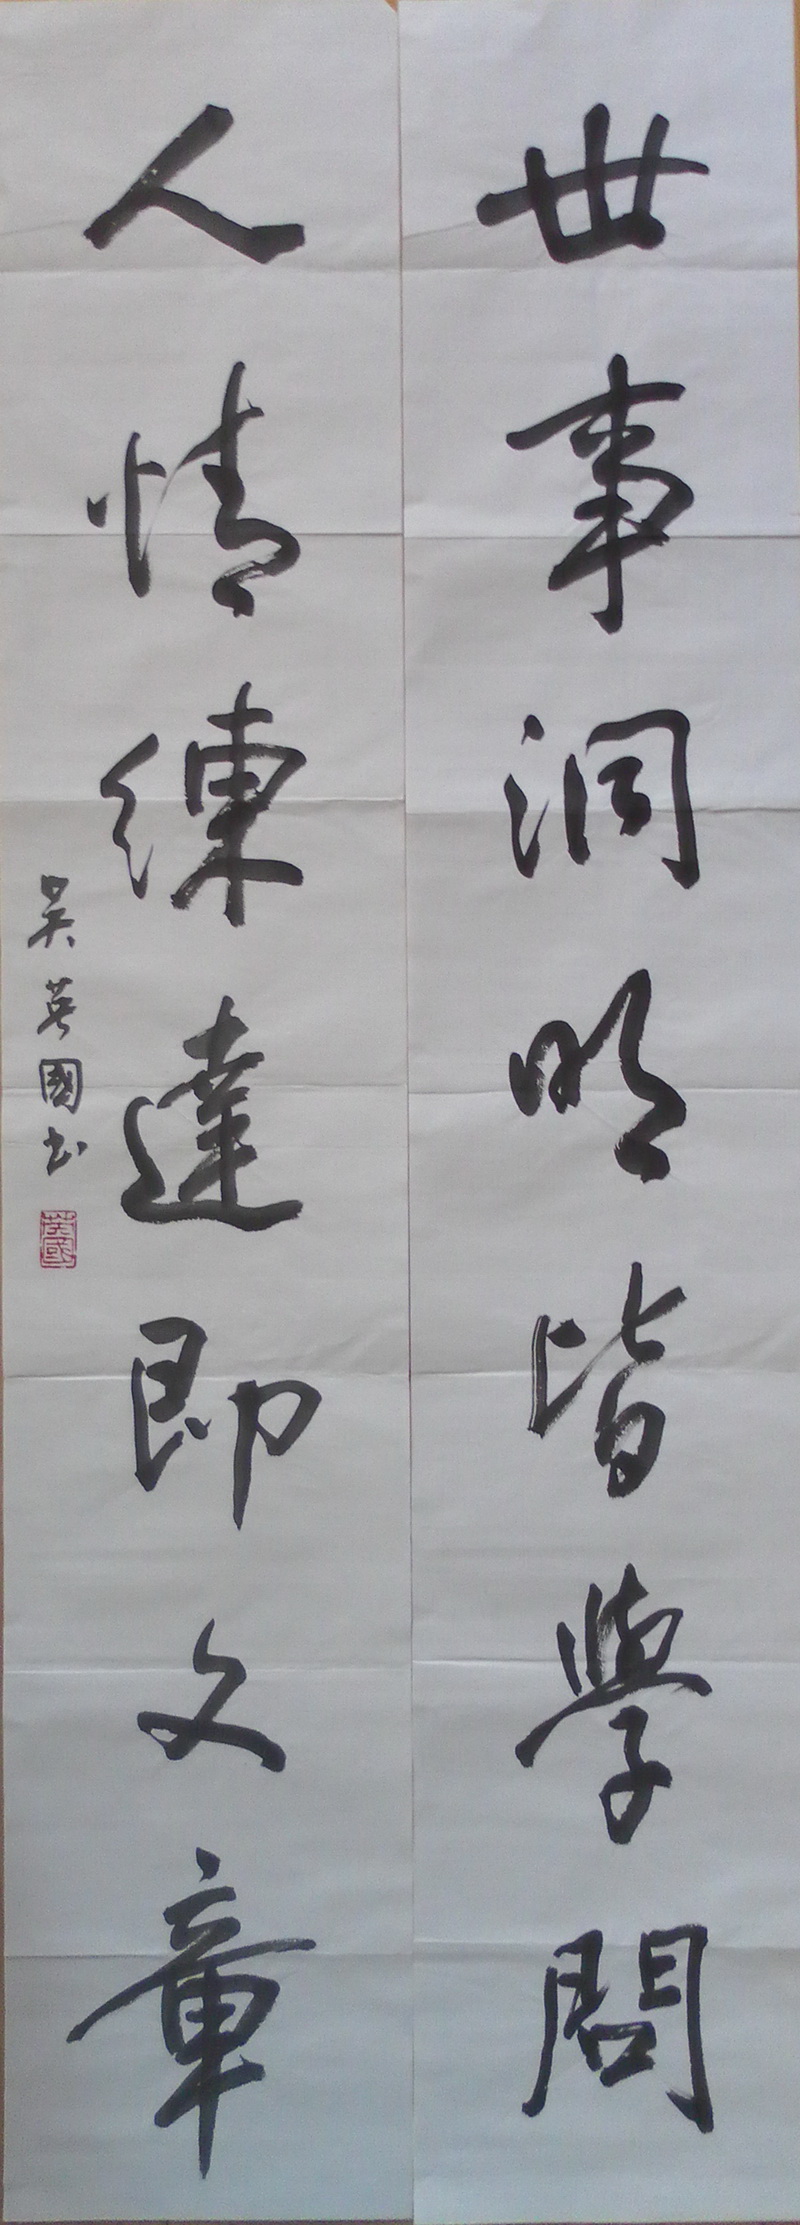 世事洞明皆學問
人情練達即文章
吳英國书
英國